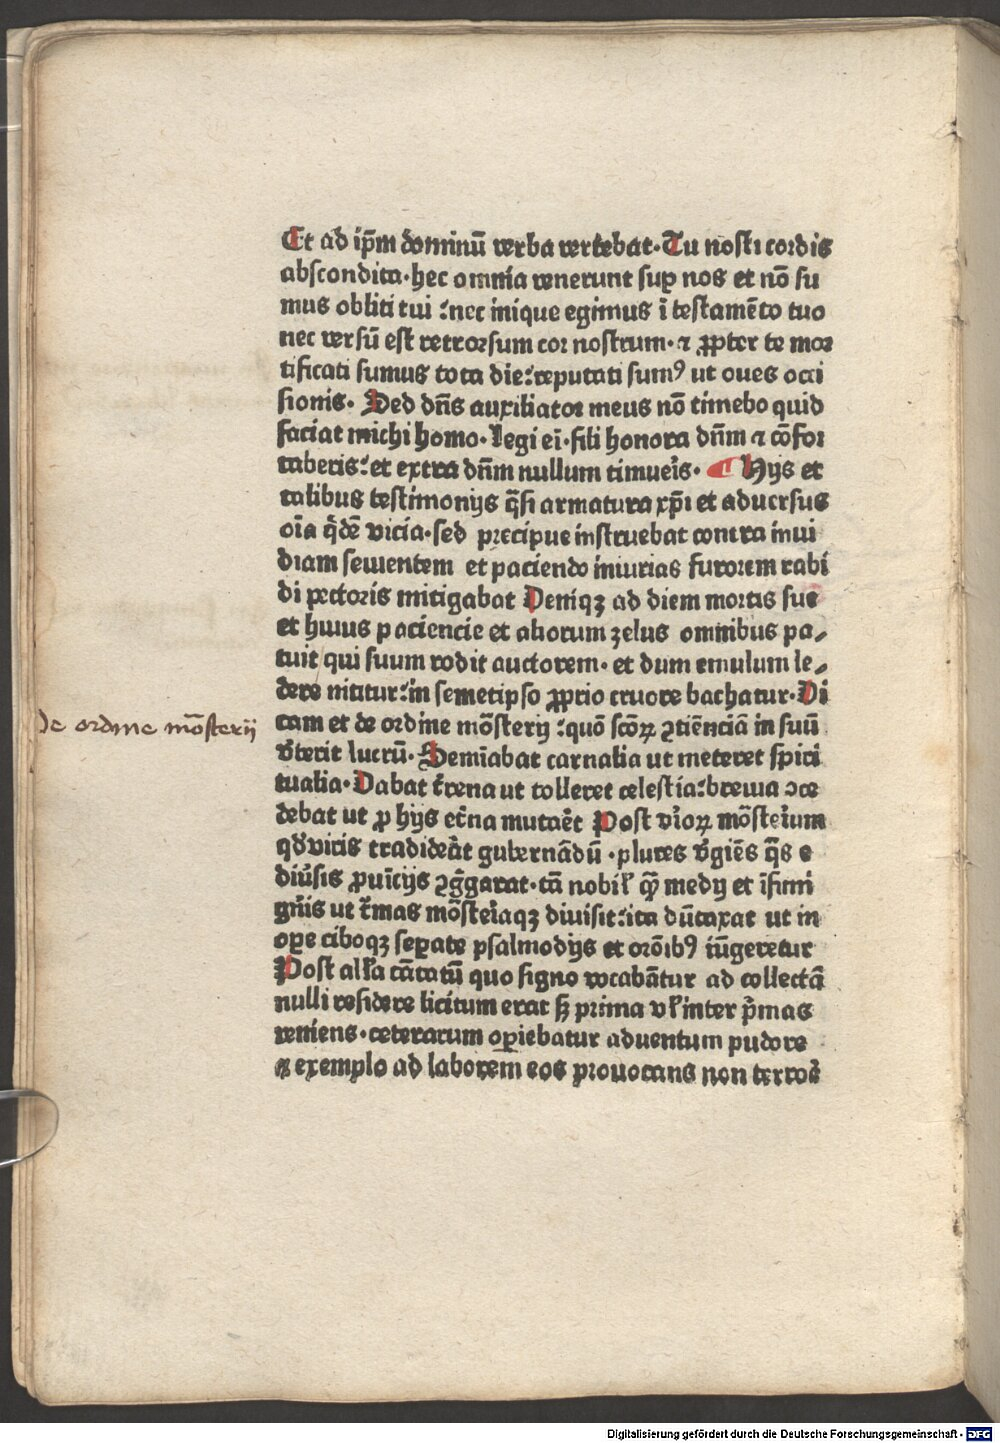 Et ad ip̄m dominū verba vertebat·Tu nosti cordis
abscondita·hec omnia venerunt suꝑ nos et nō su
mus obliti tui :nec inique egimus ī testamēto tuo
nec versū est retrorsum cor nostrum·⁊ ꝓpter te mor
tificati sumus tota die:reputati sumꝰ ut oues occi
sionis· Sed dn̄s auxiliator meus nō timebo quid
faciat michi homo·Legi ei·fili honora dn̄m ⁊ cōfor
taberis:et extra dn̄m nullum timueis· ¶ Hijs et
talibus testimonijs q̄si armatura xp̄i et aduersus
oīa q̄dē vicia·sed precipue instruebat contra inui
diam seuientem et paciendo iniurias furorem rabi
di pectoris mitigabat Deniqꝫ ad diem mortis sue
et huius paciencie et aliorum zelus omnibus pa⸗
tuit qui suum rodit auctorem· et dum emulum le⸗
dere nititur:in semetipso ꝓprio cruore bachatur·Di
De ordine mōsterij
cam et de ordine mōsterij :quō scōꝝ ꝯtiēnciā in suū
v̄terit lucrū·Seminabat carnalia ut meteret spiri
tualia·Dabat t̄rena ut tolleret celestia:breuia ꝯce
debat ut ꝓ hijs et̄na mutaēt Post v̄ioꝝ mōsterium
qd̓ viris tradideāt gubernādū ·plures v̄giēs q̄s e
diūsis ꝓuīcijs ꝯḡgarat·tā nobil̓ qꝫ medij et īfimi
gn̄is ut t̄mas mōsteriaqꝫ diuisit:ita dūtaxat ut in
oꝑe ciboqꝫ seꝑate psalmodijs et orōibꝰ iūgeretur
Post all̓a cātatū quo signo vocabātur ad collectā
nulli residere licitum erat sꝫ prima vl̓ inter p̄mas
veniens·ceterarum oꝑiebatur aduentum pudore
⁊ exemplo ad laborem eos prouocans non terrore
Digitalisierung gefördert durch die Deutsche Forschungsgemeinschaft - DFG